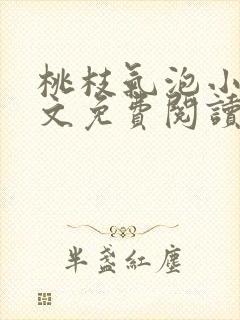 桃枝氣泡小
文免費閱讀
半盞紅塵